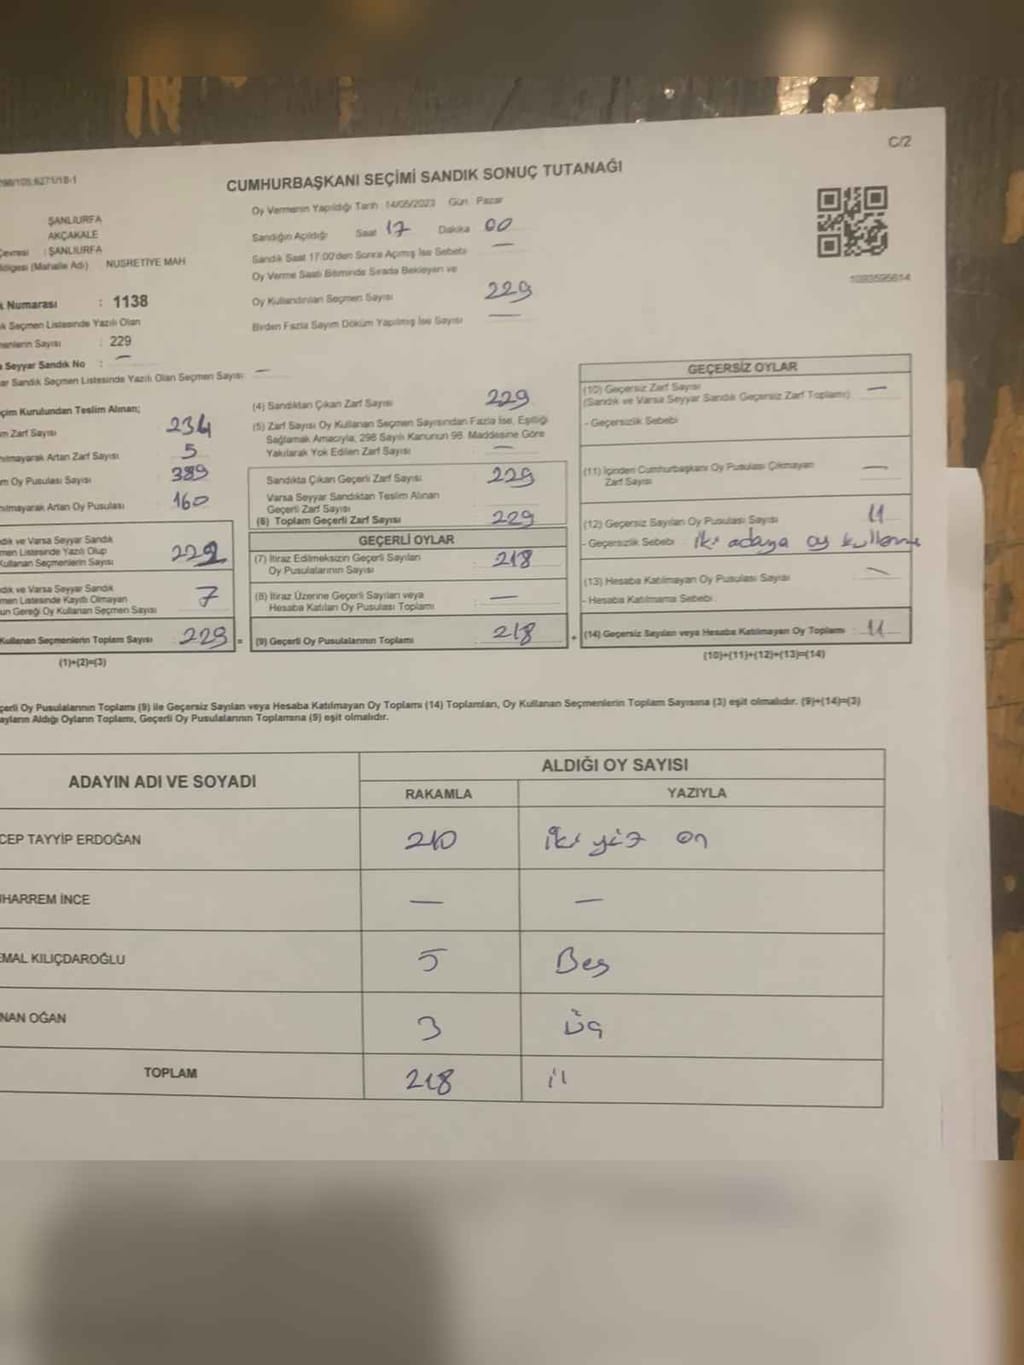 C/2
CUMHURBAŞKANI SEÇİMİ SANDIK SONUÇ TUTANAĞI
ŞANLIURFA
AKÇAKALE
Çevresi : ŞANLIURFA
(Mahalle Adı) NUSRETİYE MAH
Numarası : 1138
Seçmen Listesinde Yazılı Olan
Sayısı : 229
Seyyar Sandık No : —
Sandık Seçmen Listesinde Yazılı Olan Seçmen Sayısı —
Oy Vermenin Yapıldığı Tarih : 14/05/2023 Gün : Pazar
Sandığın Açıldığı Saat 17 Dakika 00
Sandık Saat 17.00'den Sonra Açılmış İse Sebebi —
Oy Verme Saati Bitiminde Sırada Bekleyen ve
Oy Kullandırılan Seçmen Sayısı 229
Birden Fazla Sayım Döküm Yapılmış İse Sayısı —
1093595614
Kurulundan Teslim Alınan;
Zarf Sayısı 234
Artan Zarf Sayısı 5
Oy Pusulası Sayısı 389
Artan Oy Pusulası 160
ve Varsa Seyyar Sandık
Listesinde Yazılı Olup
Kullanan Seçmenlerin Sayısı 222
ve Varsa Seyyar Sandık
Listesinde Kayıtlı Olmayan
Gereği Oy Kullanan Seçmen Sayısı 7
Kullanan Seçmenlerin Toplam Sayısı 229 =
(1)+(2)=(3)
(4) Sandıktan Çıkan Zarf Sayısı 229
(5) Zarf Sayısı Oy Kullanan Seçmen Sayısından Fazla İse, Eşitliği
Sağlamak Amacıyla, 298 Sayılı Kanunun 98. Maddesine Göre
Yakılarak Yok Edilen Zarf Sayısı —
Sandıkta Çıkan Geçerli Zarf Sayısı 229
Varsa Seyyar Sandıktan Teslim Alınan
Geçerli Zarf Sayısı
(6) Toplam Geçerli Zarf Sayısı 229
GEÇERLİ OYLAR
(7) İtiraz Edilmeksizin Geçerli Sayılan
Oy Pusulalarının Sayısı 218
(8) İtiraz Üzerine Geçerli Sayılan veya
Hesaba Katılan Oy Pusulası Toplamı —
(9) Geçerli Oy Pusulalarının Toplamı 218 +
GEÇERSİZ OYLAR
(10) Geçersiz Zarf Sayısı —
(Sandık ve Varsa Seyyar Sandık Geçersiz Zarf Toplamı)
- Geçersizlik Sebebi
(11) İçinden Cumhurbaşkanı Oy Pusulası Çıkmayan
Zarf Sayısı —
(12) Geçersiz Sayılan Oy Pusulası Sayısı 11
- Geçersizlik Sebebi iki adaya oy kullanma
(13) Hesaba Katılmayan Oy Pusulası Sayısı —
- Hesaba Katılmama Sebebi
(14) Geçersiz Sayılan veya Hesaba Katılmayan Oy Toplamı : 11
(10)+(11)+(12)+(13)=(14)
Oy Pusulalarının Toplamı (9) ile Geçersiz Sayılan veya Hesaba Katılmayan Oy Toplamı (14) Toplamları, Oy Kullanan Seçmenlerin Toplam Sayısına (3) eşit olmalıdır. (9)+(14)=(3)
Aldığı Oyların Toplamı, Geçerli Oy Pusulalarının Toplamına (9) eşit olmalıdır.
ADAYIN ADI VE SOYADI ALDIĞI OY SAYISI
RAKAMLA YAZIYLA
CEP TAYYİP ERDOĞAN 210 iki yüz on
HARREM İNCE — —
MAL KILIÇDAROĞLU 5 Beş
NAN OĞAN 3 üç
TOPLAM 218